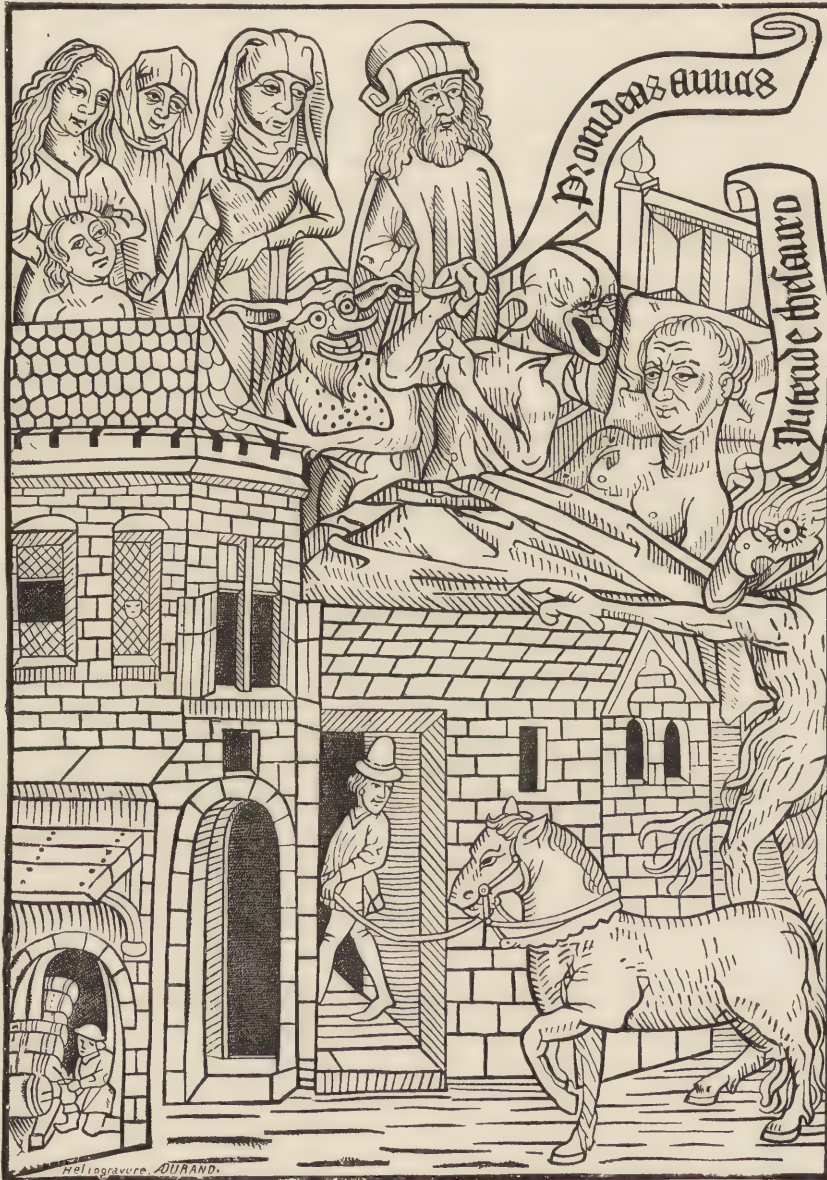 Prouideas amicis
Intende theſauro
Heliogravure. A DURAND.